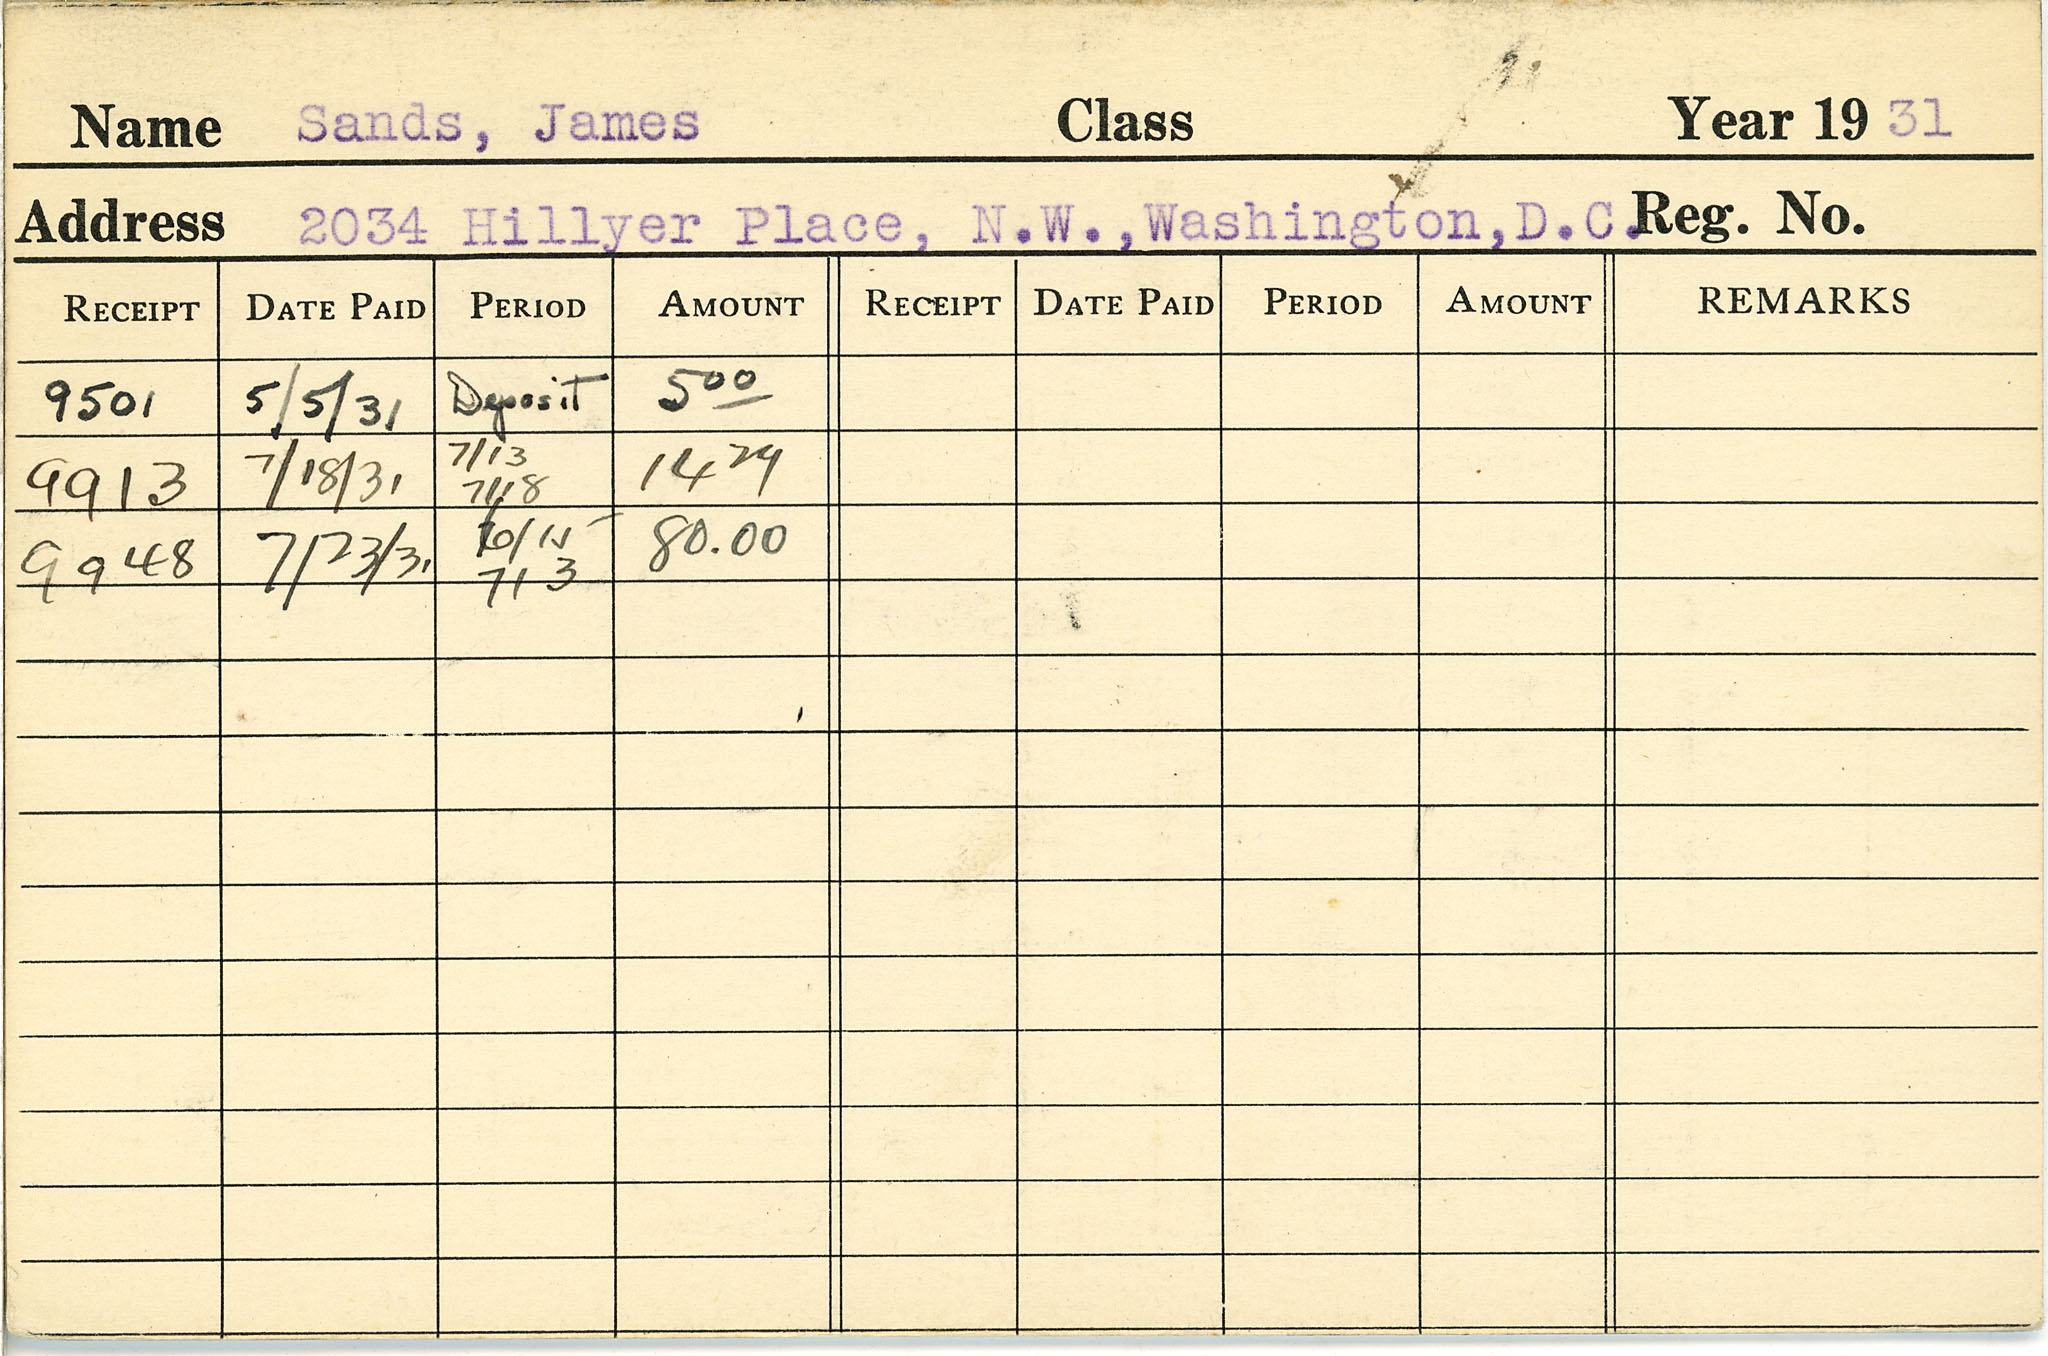 Name Sands, James Class Year 19 31
Address 2034 Hillyer Place, N.W., Washington, D.C. Reg. No.
RECEIPT DATE PAID PERIOD AMOUNT RECEIPT DATE PAID PERIOD AMOUNT REMARKS
9501 5/5/31 Deposit 5 00
9913 7/18/31 7/13 7/18 14 29
9948 7/23/31 6/15 7/3 80.00